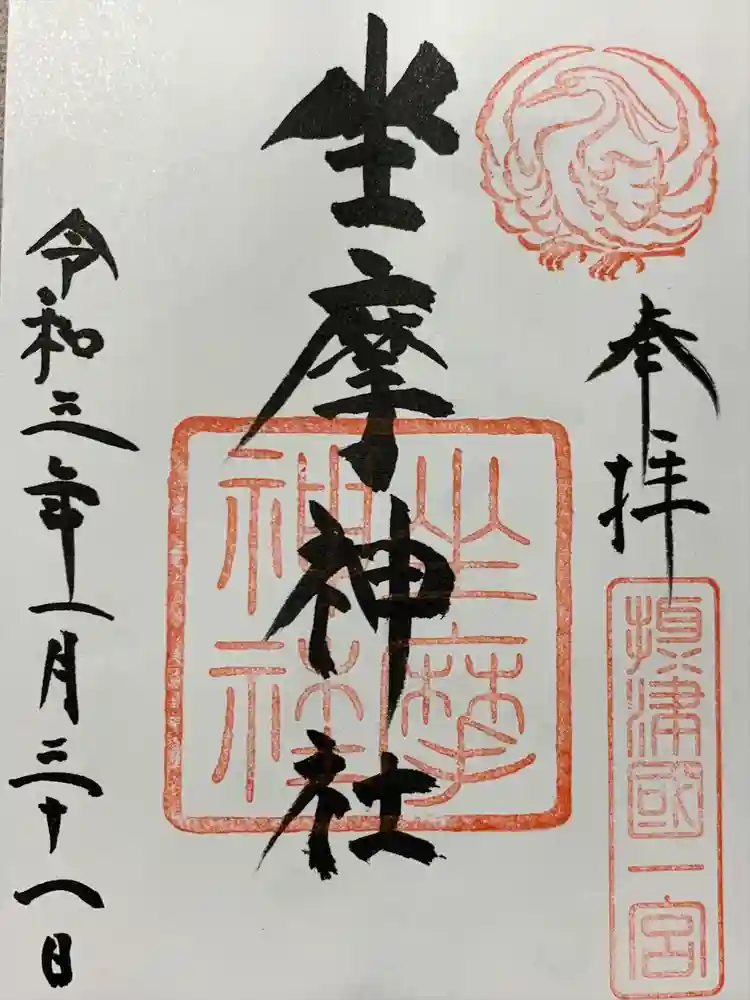 奉拝
摂津國一宮
坐摩神社
坐摩神社
令和三年一月三十八日